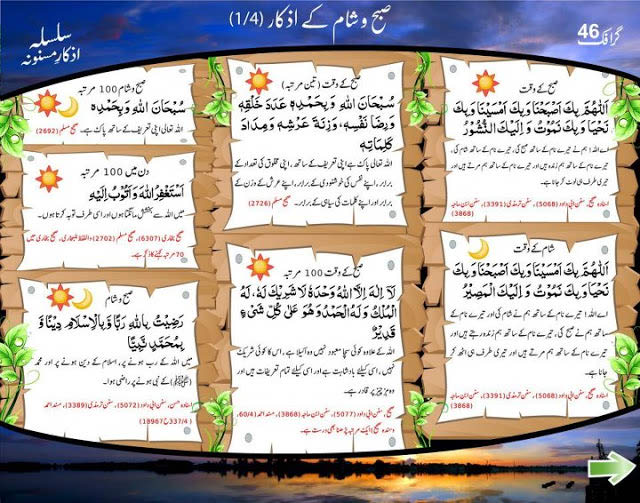 گرافک 46
صبح و شام کے اذکار (1/4)
سلسلہ
اذکارِ مسنونہ
صبح کے وقت
اَللّٰهُمَّ بِكَ اَصْبَحْنَا وَبِكَ اَمْسَيْنَا وَبِكَ
نَحْيَا وَبِكَ نَمُوْتُ وَ اِلَيْكَ النُّشُوْرُ
اے اللہ! ہم نے تیرے نام کے ساتھ صبح کی، تیرے نام کے ساتھ
شام کی، تیرے نام کے ساتھ ہم زندہ ہیں اور تیرے نام کے ساتھ ہم مرتے ہیں اور
تیری طرف ہی لوٹ کر جانا ہے۔
اسنادہ صحیح، سنن ابی داود (5068)، سنن ترمذی (3391)، سنن ابن ماجہ
(3868)
شام کے وقت
اَللّٰهُمَّ بِكَ اَمْسَيْنَا وَبِكَ اَصْبَحْنَا وَبِكَ
نَحْيَا وَبِكَ نَمُوْتُ وَ اِلَيْكَ الْمَصِيْرُ
اے اللہ! تیرے نام کے ساتھ ہم نے شام کی اور تیرے نام کے
ساتھ ہم نے صبح کی، تیرے نام کے ساتھ ہم زندہ رہتے ہیں اور
تیرے نام کے ساتھ ہم مرتے ہیں اور تیری طرف ہی اٹھ کر
جانا ہے۔
اسنادہ صحیح، سنن ابی داود (5068)، سنن ترمذی (3391)، سنن ابن ماجہ
(3868)
صبح کے وقت (تین مرتبہ)
سُبْحَانَ اللّٰهِ وَ بِحَمْدِهٖ عَدَدَ خَلْقِهٖ
وَ رِضَا نَفْسِهٖ، وَزِنَةَ عَرْشِهٖ وَ مِدَادَ
كَلِمَاتِهٖ
اللہ تعالیٰ پاک ہے اپنی تعریف کے ساتھ، اپنی مخلوق کی تعداد کے
برابر، اپنے نفس کی خوشنودی کے برابر، اپنے عرش کے وزن کے
برابر اور اپنے کلمات کی سیاہی کے برابر۔ صحیح مسلم (2726)
صبح کے وقت 100 مرتبہ
لَآ اِلٰهَ اِلَّا اللّٰهُ وَحْدَهٗ لَا شَرِيْكَ لَهٗ، لَهُ
الْمُلْكُ وَ لَهُ الْحَمْدُ وَهُوَ عَلٰى كُلِّ شَيْءٍ
قَدِيْرٌ
اللہ کے علاوہ کوئی سچا معبود نہیں وہ اکیلا ہے، اس کا کوئی شریک
نہیں، اسی کیلئے بادشاہت ہے اور اسی کیلئے تمام تعریفات ہیں اور
وہ ہر چیز پر قادر ہے۔
صحیح، سنن ابی داود (5077)، سنن ابن ماجہ (3868)، مسند احمد (60/4)،
ایک مرتبہ پڑھنا بھی درست ہے۔
صبح و شام 100 مرتبہ
سُبْحَانَ اللّٰهِ وَ بِحَمْدِهٖ
اللہ تعالیٰ اپنی تعریف کے ساتھ پاک ہے۔ صحیح مسلم (2692)
دن میں 100 مرتبہ
اَسْتَغْفِرُ اللّٰهَ وَ اَتُوْبُ اِلَيْهِ
میں اللہ سے بخشش مانگتا ہوں اور اسی طرف توبہ کرتا ہوں۔
صحیح بخاری (6307)، صحیح مسلم (2702) واللفظ للبخاری، صحیح بخاری میں
70 مرتبہ کہنے کا ذکر ہے۔
صبح و شام
رَضِيْتُ بِاللّٰهِ رَبًّا وَّ بِالْاِسْلَامِ دِيْنًا وَّ
بِمُحَمَّدٍ نَّبِيًّا
میں اللہ کے رب ہونے پر، اسلام کے دین ہونے پر اور محمد
(ﷺ) کے نبی ہونے پر راضی ہوا۔
اسنادہ حسن، سنن ابی داود (5072)، سنن ترمذی (3389)، مسند احمد
(337/4ح 18967)